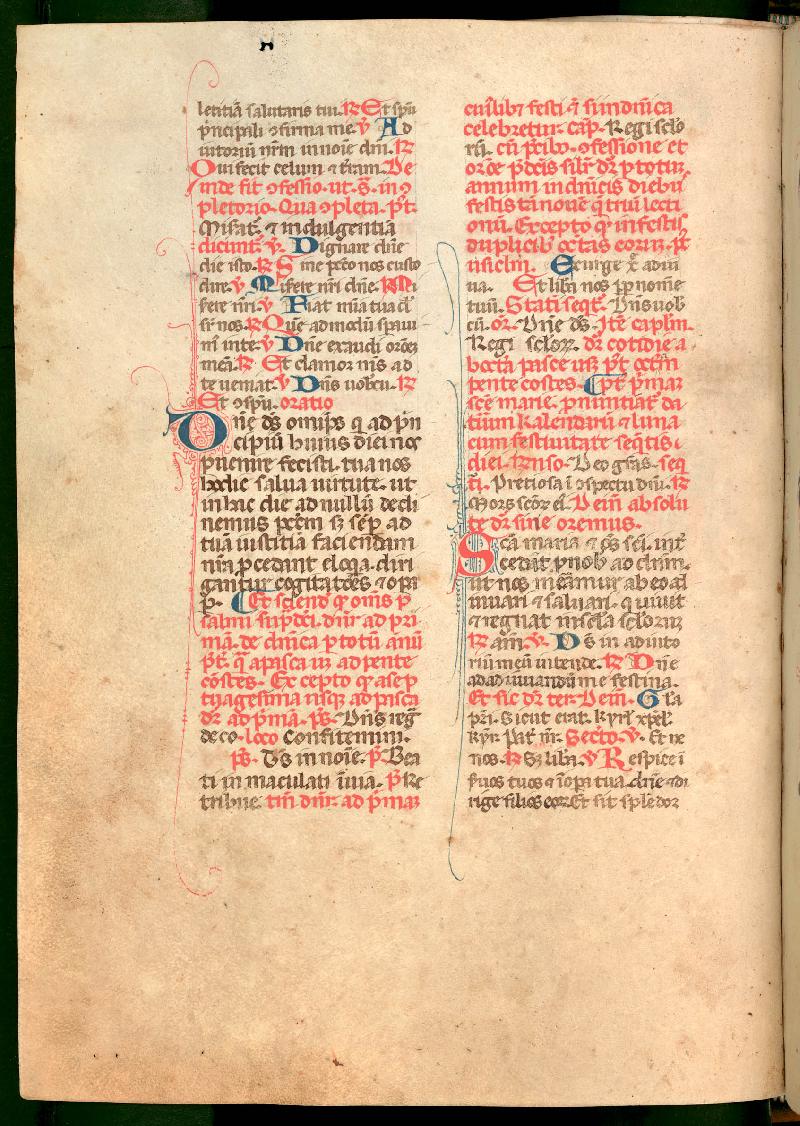 letitiā salutaris tui. ℟ Et spū
p̄ncipali ꝯfirma me. ℣ Ad
iutoriū nr̄m in noīe dn̄i. ℟
Qui fecit celum ⁊ t̄ram. De
inde fit ꝯfessio. ut. s̄. in ꝯ
pletorio. Qua ꝯpleta. p̄t.
Misat̄. ⁊ indulgentiā
dicunt̄ ℣. Dignare dn̄e
die isto. ℟ S ine pc̄to nos custo
dire. ℣ Misere nr̄i dn̄e. ℟ Mi
sere nr̄i. ℣ Fiat mīa tua d̄
sr̄ nos. ℟ Quē admodū spaui
m̄ in te. ℣ Dn̄e exaudi or̄oēz
meā. ℟ Et clamor m̄s ad
te ueniat. ℣ Dn̄s uobcū. ℟
Et ꝯ spū. oratio
Dn̄e ds̄ omīps q ad p̄n
cipiū huius diei nos
puenire fecisti. tua nos
hodie salua uirtute. ut
in hac die ad nullū decli
nemus pctm̄ sꝫ sēp ad
tuā iustitiā faciendam
nr̄a p̄cedant eloq̄a. diri
gantur cogitatōes ⁊ opa
p̄. Et sciend q̄ om̄s p̄
salmi sup̄dc̄i. dn̄r ad pri
mā. de dn̄ica p totū anū
pt̄. q̄ a pasca usꝫ ad pente
costes. Excepto q̄ a sep
tuagesima usqꝫ ad pasca
dr̄ ad p̄mā. ps̄. Dn̄s reg̅
deco. loco Confitemini.
ps̄. Ds̄ in noīe. p̄. Bea
ti in maculati ī uia. p̄ Re
tribue. tm̄ dn̄r ad p̄maz
cuiuslibꝫ festi q̄ si in dn̄ica
celebretur. cap̄. Regi sclo
rū. cū p̄cibꝫ. ꝯfessione et
or̄oe p̄dc̄is silr̄ dr̄ p totum
annum in dn̄icis diebꝫ
festis tā noue q̄ triū lecti
onū. Excepto q̄ in festis
duplicibꝫ octas eorum. ꝑ
usiclm̄. Exurge xp̄e adiu
ua. Et liba nos pp nomē
tuū. Stati seqt̄. Dn̄s uob
cū. or̄. Dn̄e ds̄. Itē caplm̄.
Regi sclorꝫ. dr̄ cotidie a
octa pasce usꝫ p̄t octm̄
pente costes. Pt̄ p̄maꝫ
scē marie. pnuntiat̄ da
tum kalendarū ⁊ luna
cum festiuitate seq̄ntis
diei. Deo gr̄as. seq
t̄. Pretiosa ī ꝯspectu dn̄i. ℟
Mors scōꝫ eī. Dein absolu
te dr̄ sine oremus.
Scā maria ⁊ oēs sci. int̄
cedāt p nob ad dnm̄.
ut nos meāmur ab eo ad
iuuari ⁊ saluari. qui uiuit
⁊ regnat in scl̄a scloruꝫ
℟ am̄. ℣. Ds̄ in adiuto
riū meū intende. ℟ Dn̄e
ad adiuuandū me festina.
Et sic dr̄ ter. Dein. Gl̄a
pr̄i. Sicut erat. kyrł xpel̄.
kyrł. Pat̄ nr̄. Secto. ℣. Et ne
nos. ℟ Sꝫ liba. ℣ Respice ī
suos tuos ⁊ ī opa tua. dn̄e ⁊ di
rige filios eoꝝ. Et sit splēdor